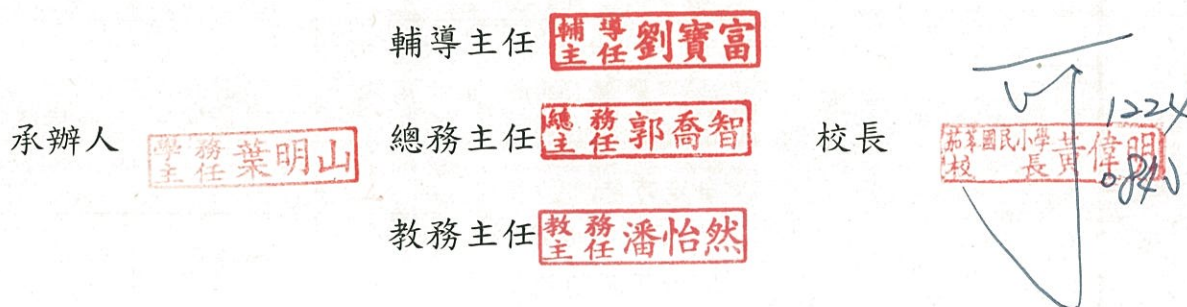 輔導主任 輔導主任 劉寶富
承辦人 學務主任 葉明山
總務主任 總務主任 郭喬智
校長 國民小學校長 黃偉明
可 1224 0840
教務主任 教務主任 潘怡然